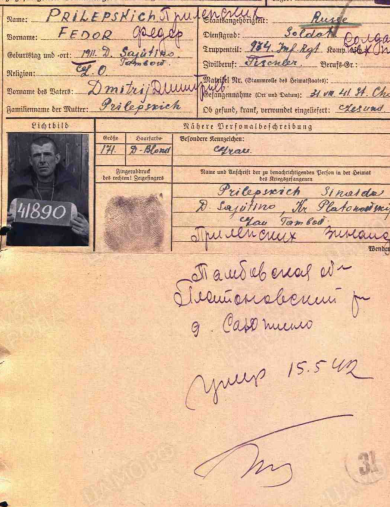 Name: PRILEPSKICH Прилепских Staatsangehörigkeit: Russe
Vorname: FEDOR Федор Dienstgrad: Soldat солдат
Geburtstag und -ort: 1911. D. Sajutino Truppenteil: 984. Inf. Rgt. Komp.
Tambow. Zivilberuf: Tischler Berufs-Gr.:
Religion: Matrikel Nr. (Stammrolle des Heimatstaates)
Vorname des Vaters: Dmitrij Дмитрий Gefangennahme (Ort und Datum): 31.VII.41. St.
Familienname der Mutter: Prilepskich Ob gesund, krank, verwundet eingeliefert: Gesund
Lichtbild Nähere Personalbeschreibung
Größe Haarfarbe Besondere Kennzeichen:
171. D-Blond
Fingerabdruck
des rechten! Zeigefingers
Name und Anschrift der zu benachrichtigenden Person in der Heimat
des Kriegsgefangenen
41890
Prilepskich Sinaida
D. Sajutino, Kr. Platonowskij
Gau Tambow
Прилепских Зинаида
Wenden
Тамбовская об-
Платоновский р-
д. Саютино
умер 15.5.42